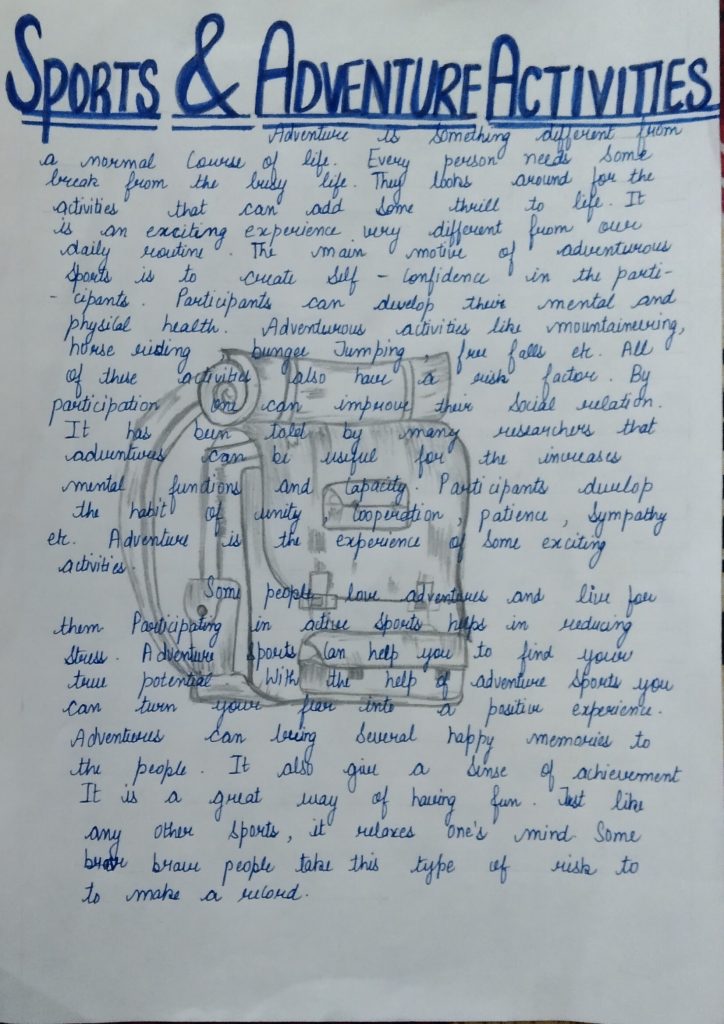 SPORTS & ADVENTURE ACTIVITIES
Adventure is something different from
a normal Course of life. Every person needs Some
break from the busy life. They looks around for the
activities that can add Some thrill to life. It
is an exciting experience very different from our
daily routine. The main motive of adventurous
Sports is to create Self - Confidence in the parti-
- cipants. Participants can develop their mental and
physical health. Adventurous activities like mountaineering,
horse riding, bungee Jumping, free falls etc. All
of these activities also have a risk factor. By
participation one can improve their Social relation.
It has been told by many researchers that
adventures can be useful for the increases
mental functions and Capacity. Participants develop
the habit of unity, Cooperation, patience, Sympathy
etc. Adventure is the experience of Some exciting
activities.
Some people love adventures and live for
them Participating in active Sports helps in reducing
Stress. Adventure Sports Can help you to find your
true potential. With the help of adventure Sports you
can turn your fear into a positive experience.
Adventures can bring Several happy memories to
the people. It also give a Sense of achievement
It is a great way of having fun. Just like
any other Sports, it relaxes one's mind. Some
brave people take this type of risk to
to make a record.